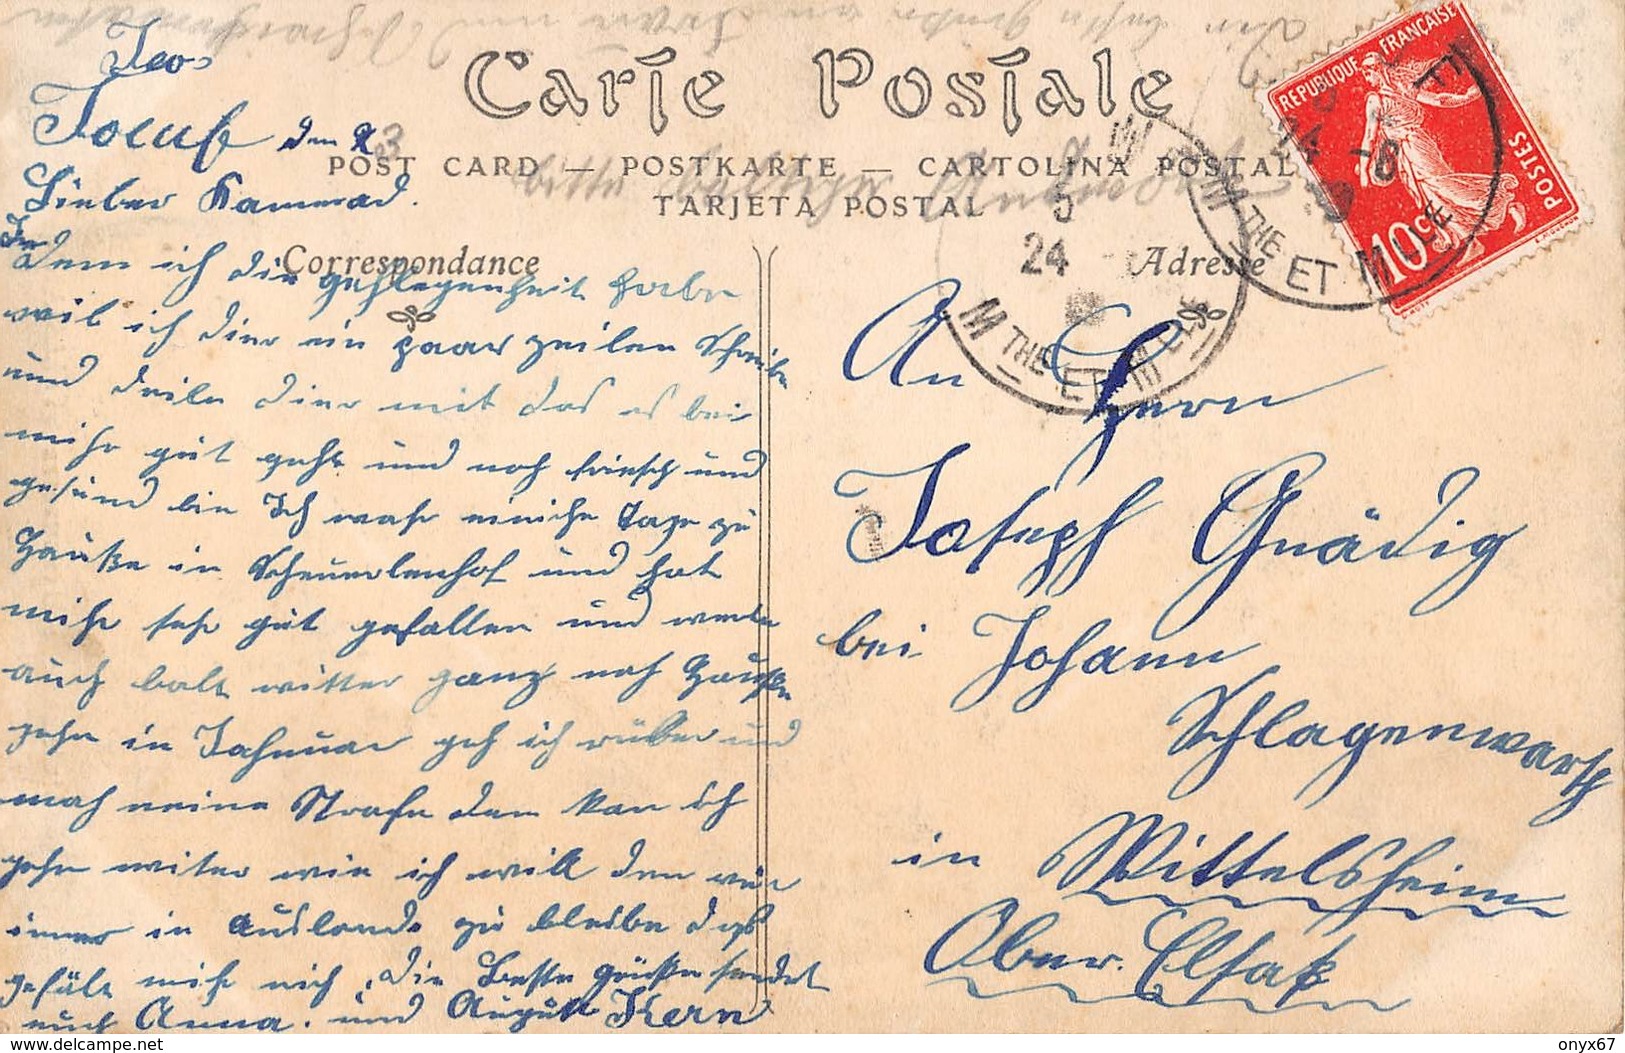 Carte Postale
POST CARD — POSTKARTE — CARTOLINA POSTAL
TARJETA POSTAL
Correspondance
Adresse
REPUBLIQUE FRANÇAISE
POSTES
10c
24
M THE ET M LLE
M THE ET M LLE
Joeuf den
Lieber Kamerad.
In dem ich die gehlegenheit habe
weil ich dier ein paar zeilen schreiben
und deile dier mit das es bei
mihr gut geht und noh friesch und
gesund bin Ich wahr einiche Tage zu
Hauße in Scheuerlenhof und hat
mihr sehr gut gefallen und werde
auch balt witter ganz noh Hauße
gehn in Jahnuar geh ich rüber und
mach meine Strafe den kan ich
gehn weiter wie ich will den vür
immer in Auslande zu bleibe das
gefält mihr nich, die Beste grüße sendet
euch Anna. und August Kern
bitte baltiger Antwort
An Hern
Joseph Gnädig
bei Johann
Schlagenwarth
in Wittelsheim
Ober. Elsaß
onyx67
delcampe.net